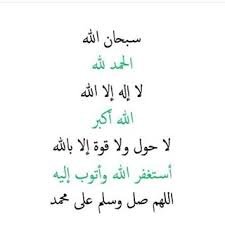 سبحان الله
الحمد لله
لا إله إلا الله
الله أكبر
لا حول ولا قوة إلا بالله
أستغفر الله وأتوب إليه
اللهم صل وسلم على محمد